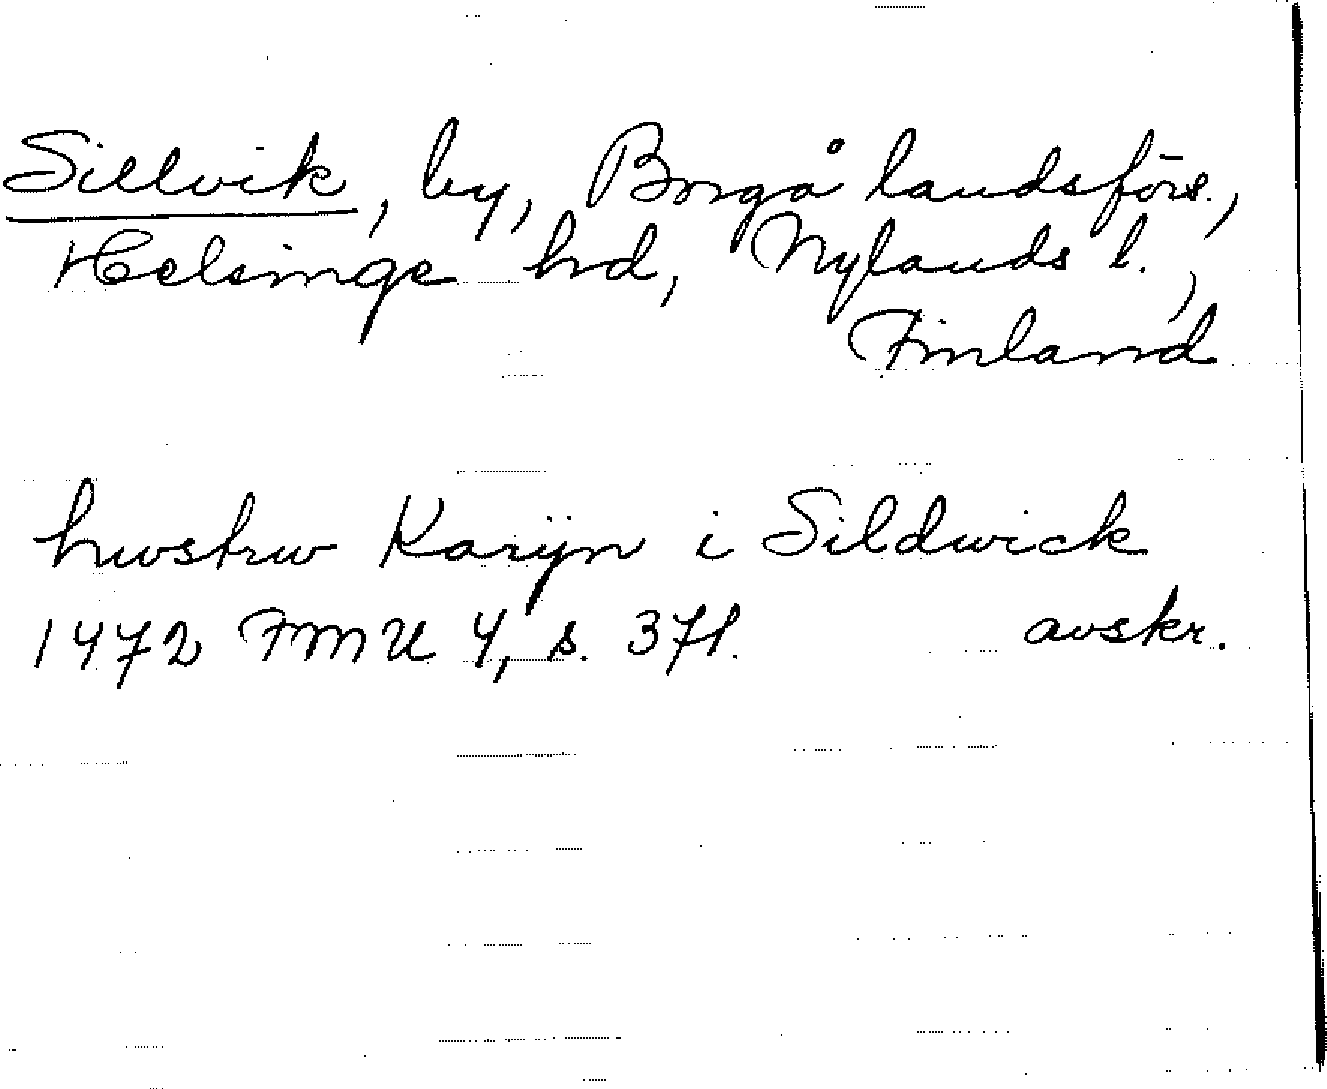 Sillvik, by, Borgå landsförs.,
Helsinge hd, Nylands l.,
Finland
hwstrw Karijn i Sildwick
1472 FMU 4, s. 371. avskr.